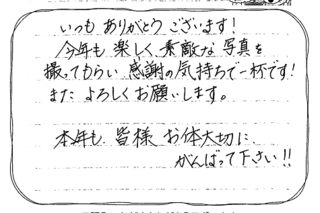 いつも ありがとう ございます!
今年も 楽しく、素敵な 写真を
撮ってもらい 感謝の気持ちで一杯です!
また よろしくお願いします。
本年も 皆様 お体大切に
がんばって下さい!!